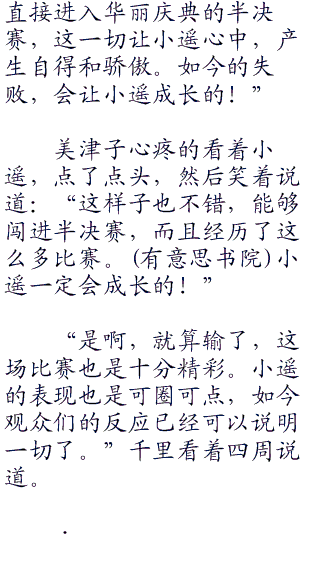 直接进入华丽庆典的半决
赛，这一切让小遥心中，产
生自得和骄傲。如今的失
败，会让小遥成长的！”
美津子心疼的看着小
遥，点了点头，然后笑着说
道：“这样子也不错，能够
闯进半决赛，而且经历了这
么多比赛。(有意思书院)小
遥一定会成长的！”
“是啊，就算输了，这
场比赛也是十分精彩。小遥
的表现也是可圈可点，如今
观众们的反应已经可以说明
一切了。”千里看着四周说
道。
.